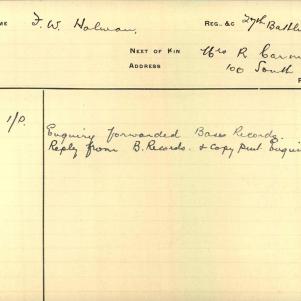 ME F. W. Holman REG. &C 27th Battn
NEXT OF KIN Mrs R
ADDRESS 100 South
1/P. Enquiry forwarded Base Records.
Reply from B. Records. & copy sent Enqui